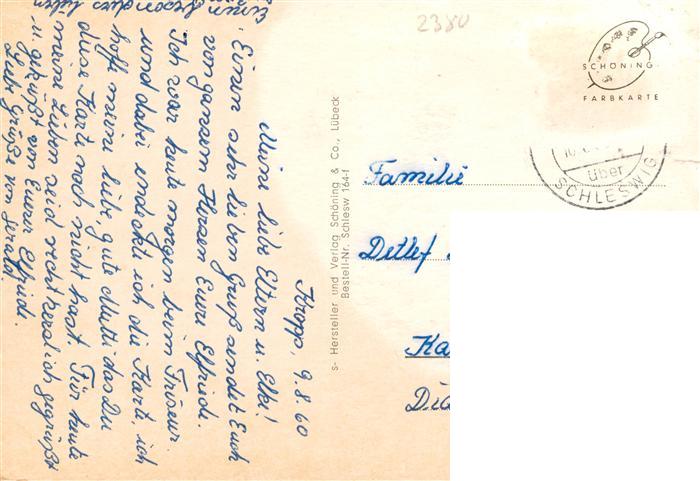 Kropp, 9.8.60
Meine liebe Eltern u. Elki!
Einen sehr lieben Gruß sendet Euch
von ganzem Herzen Eure Elfriede.
Ich war heute morgen beim Friseur
und dabei endeckte ich die Karte, ich
hoff meine liebe gute Mutti das Du
diese Karte noch nicht hast. Für heute
meine Lieben seid recht herzlich gegrüßt
u. geküßt von Eurer Elfriede.
Liebe Grüße von Gerald.
Einen besonders
2380
SCHÖNING
FARBKARTE
über
SCHLESWIG
s- Hersteller und Verlag Schöning & Co., Lübeck
Bestell-Nr. Schlesw 164-f
Familie
Detlef
Ka